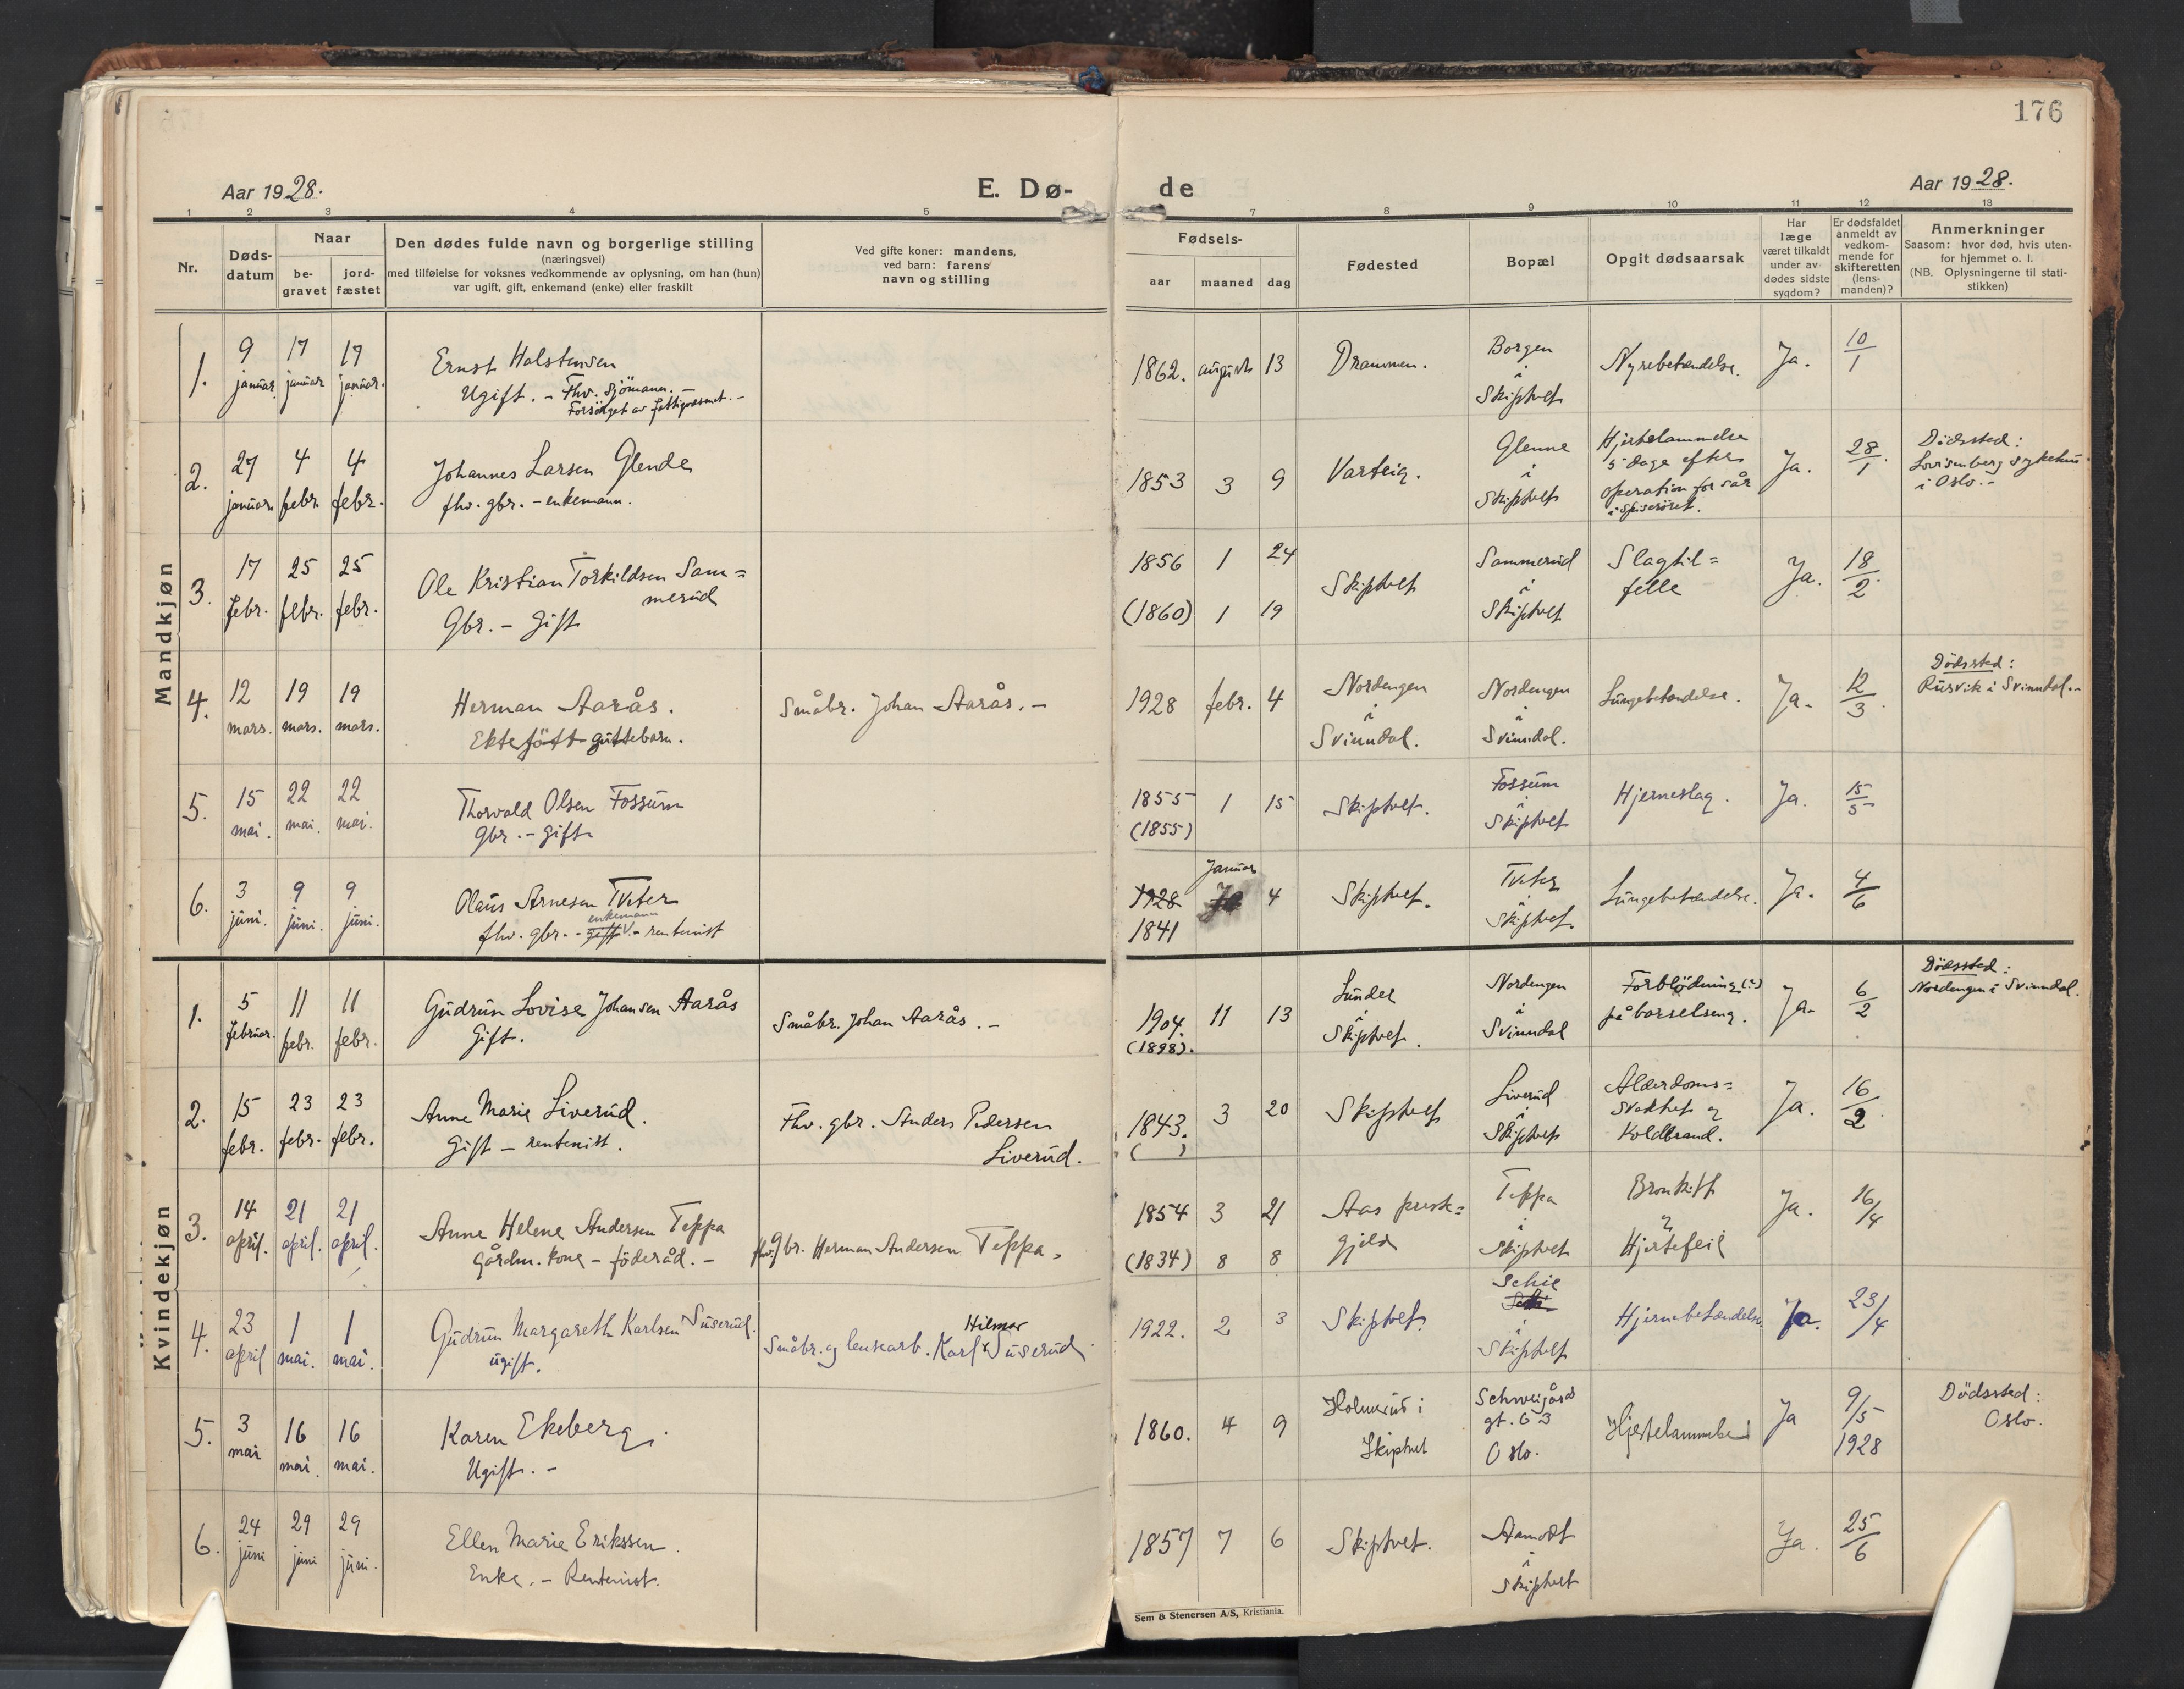 176
Aar 1928.
E. Dø-
de
Aar 1928.
1 2 3 4 5 7 8 9 10 11 12 13
Nr.
Døds-
datum
Naar
be-
gravet
jord-
fæstet
Den dødes fulde navn og borgerlige stilling
(næringsvei)
med tilføielse for voksnes vedkommende av oplysning, om han (hun)
var ugift, gift, enkemand (enke) eller fraskilt
Ved gifte koner: mandens,
ved barn: farens
navn og stilling
Fødsels-
aar
maaned
dag
Fødested
Bopæl
Opgit dødsaarsak
Har
læge
været tilkaldt
under av-
dødes sidste
sygdom?
Er dødsfaldet
anmeldt av
vedkom-
mende for
skifteretten
(lens-
manden)?
Anmerkninger
Saasom: hvor død, hvis uten-
for hjemmet o. l.
(NB. Oplysningerne til stati-
stikken)
Mandkjøn
1.
9
januar.
17
januar
17
januar.
Ernst Halstensen
Ugift. - Fhv. Sjömann. -
Forsörget av fattigvæsenet. -
1862. august 13
Drammen.
Borgen
i
Skiptvet
Nyrebetændelse.
Ja.
10/1
2.
27
januar.
4
febr.
4
febr.
Johannes Larsen Glende
fhv. gbr. - enkemann.
1853 3 9
Varteig.
Glenne
i
Skiptvet
Hjertelammelse
5 dage efter
operation for sår
i spiserøret.
Ja.
28/1.
Dödssted:
Lovisenberg sykehus
i Oslo. -
3.
17
febr.
25
febr.
25
febr.
Ole Kristian Torkildsen Sam=
merud
Gbr. - Gift
1856 1 24
(1860) 1 19
Skiptvet
Sammerud
i
Skiptvet
Slagtil=
felle
Ja.
18/2.
4.
12
mars.
19
mars.
19
mars.
Herman Aarås.
Ektefött guttebarn.
Småbr. Johan Aarås. -
1928 febr. 4
Nordengen
i
Svinndal.
Nordengen
i
Svinndal.
Lungebetændelse.
Ja.
12/3.
Dödssted:
Rusvik i Svinndal. -
5.
15
mai.
22
mai.
22
mai.
Thorvald Olsen Fossum
Gbr. - Gift
1855 1 15
(1855)
Skiptvet.
Fossum
i
Skiptvet
Hjerneslag.
Ja.
15/5
6.
3
juni.
9
juni.
9
juni.
Olaus Arnesen Tveter
enkemann
fhv. gbr. - gift v. - rentenist
Januar
1928 4
1841
Skiptvet.
Tveter
i
Skiptvet.
Lungebetændelse.
Ja.
4/6
Kvindekjøn
1.
5
februar.
11
febr.
11
febr.
Gudrun Lovise Johansen Aarås
Gift.
Småbr. Johan Aarås. -
1904. 11 13
(1898).
Lunder
i
Skiptvet.
Nordengen
i
Svinndal
Forblödning (?)
på barselseng.
Ja.
6/2
Dödssted:
Nordengen i Svinndal.
2.
15
febr.
23
febr.
23
febr.
Anne Marie Liverud.
Gift - rentenist.
Fhv. gbr. Anders Pedersen
Liverud.
1843. 3 20
( )
Skiptvet
Liverud
i
Skiptvet
Alderdoms=
svakhet og
Koldbrand.
Ja.
16/2.
3.
14
april.
21
april.
21
april.
Anne Helene Andersen Teppa
Gårdm. kone - föderåd. -
fhv. gbr. Herman Andersen Teppa.
1854 3 21
(1834) 8 8
Aas prest=
gjeld
Teppa
i
Skiptvet
Bronkitt
og
Hjertefeil
Ja.
16/4
4.
23
april
1
mai.
1
mai.
Gudrun Margareth Karlsen Suserud.
ugift.
Hilmar
Småbr. og lensearb. Karl Suserud
1922. 2 3
Skiptvet.
Schie
i
Skiptvet
Hjernebetændelse
Ja.
23/4
5.
3
mai
16
mai.
16
mai.
Karen Ekeberg.
Ugift. -
1860. 4 9
Holmerud i
Skiptvet
Schweigårds
gt. 63
Oslo.
Hjertelammelse
Ja
9/5
1928
Dödssted:
Oslo.
6.
24
juni
29
juni
29
juni.
Ellen Marie Erikssen.
Enke. - Rentenist.
1857 7 6
Skiptvet.
Aamodt
i
Skiptvet
Ja.
25/6
Sem & Stenersen A/S, Kristiania.